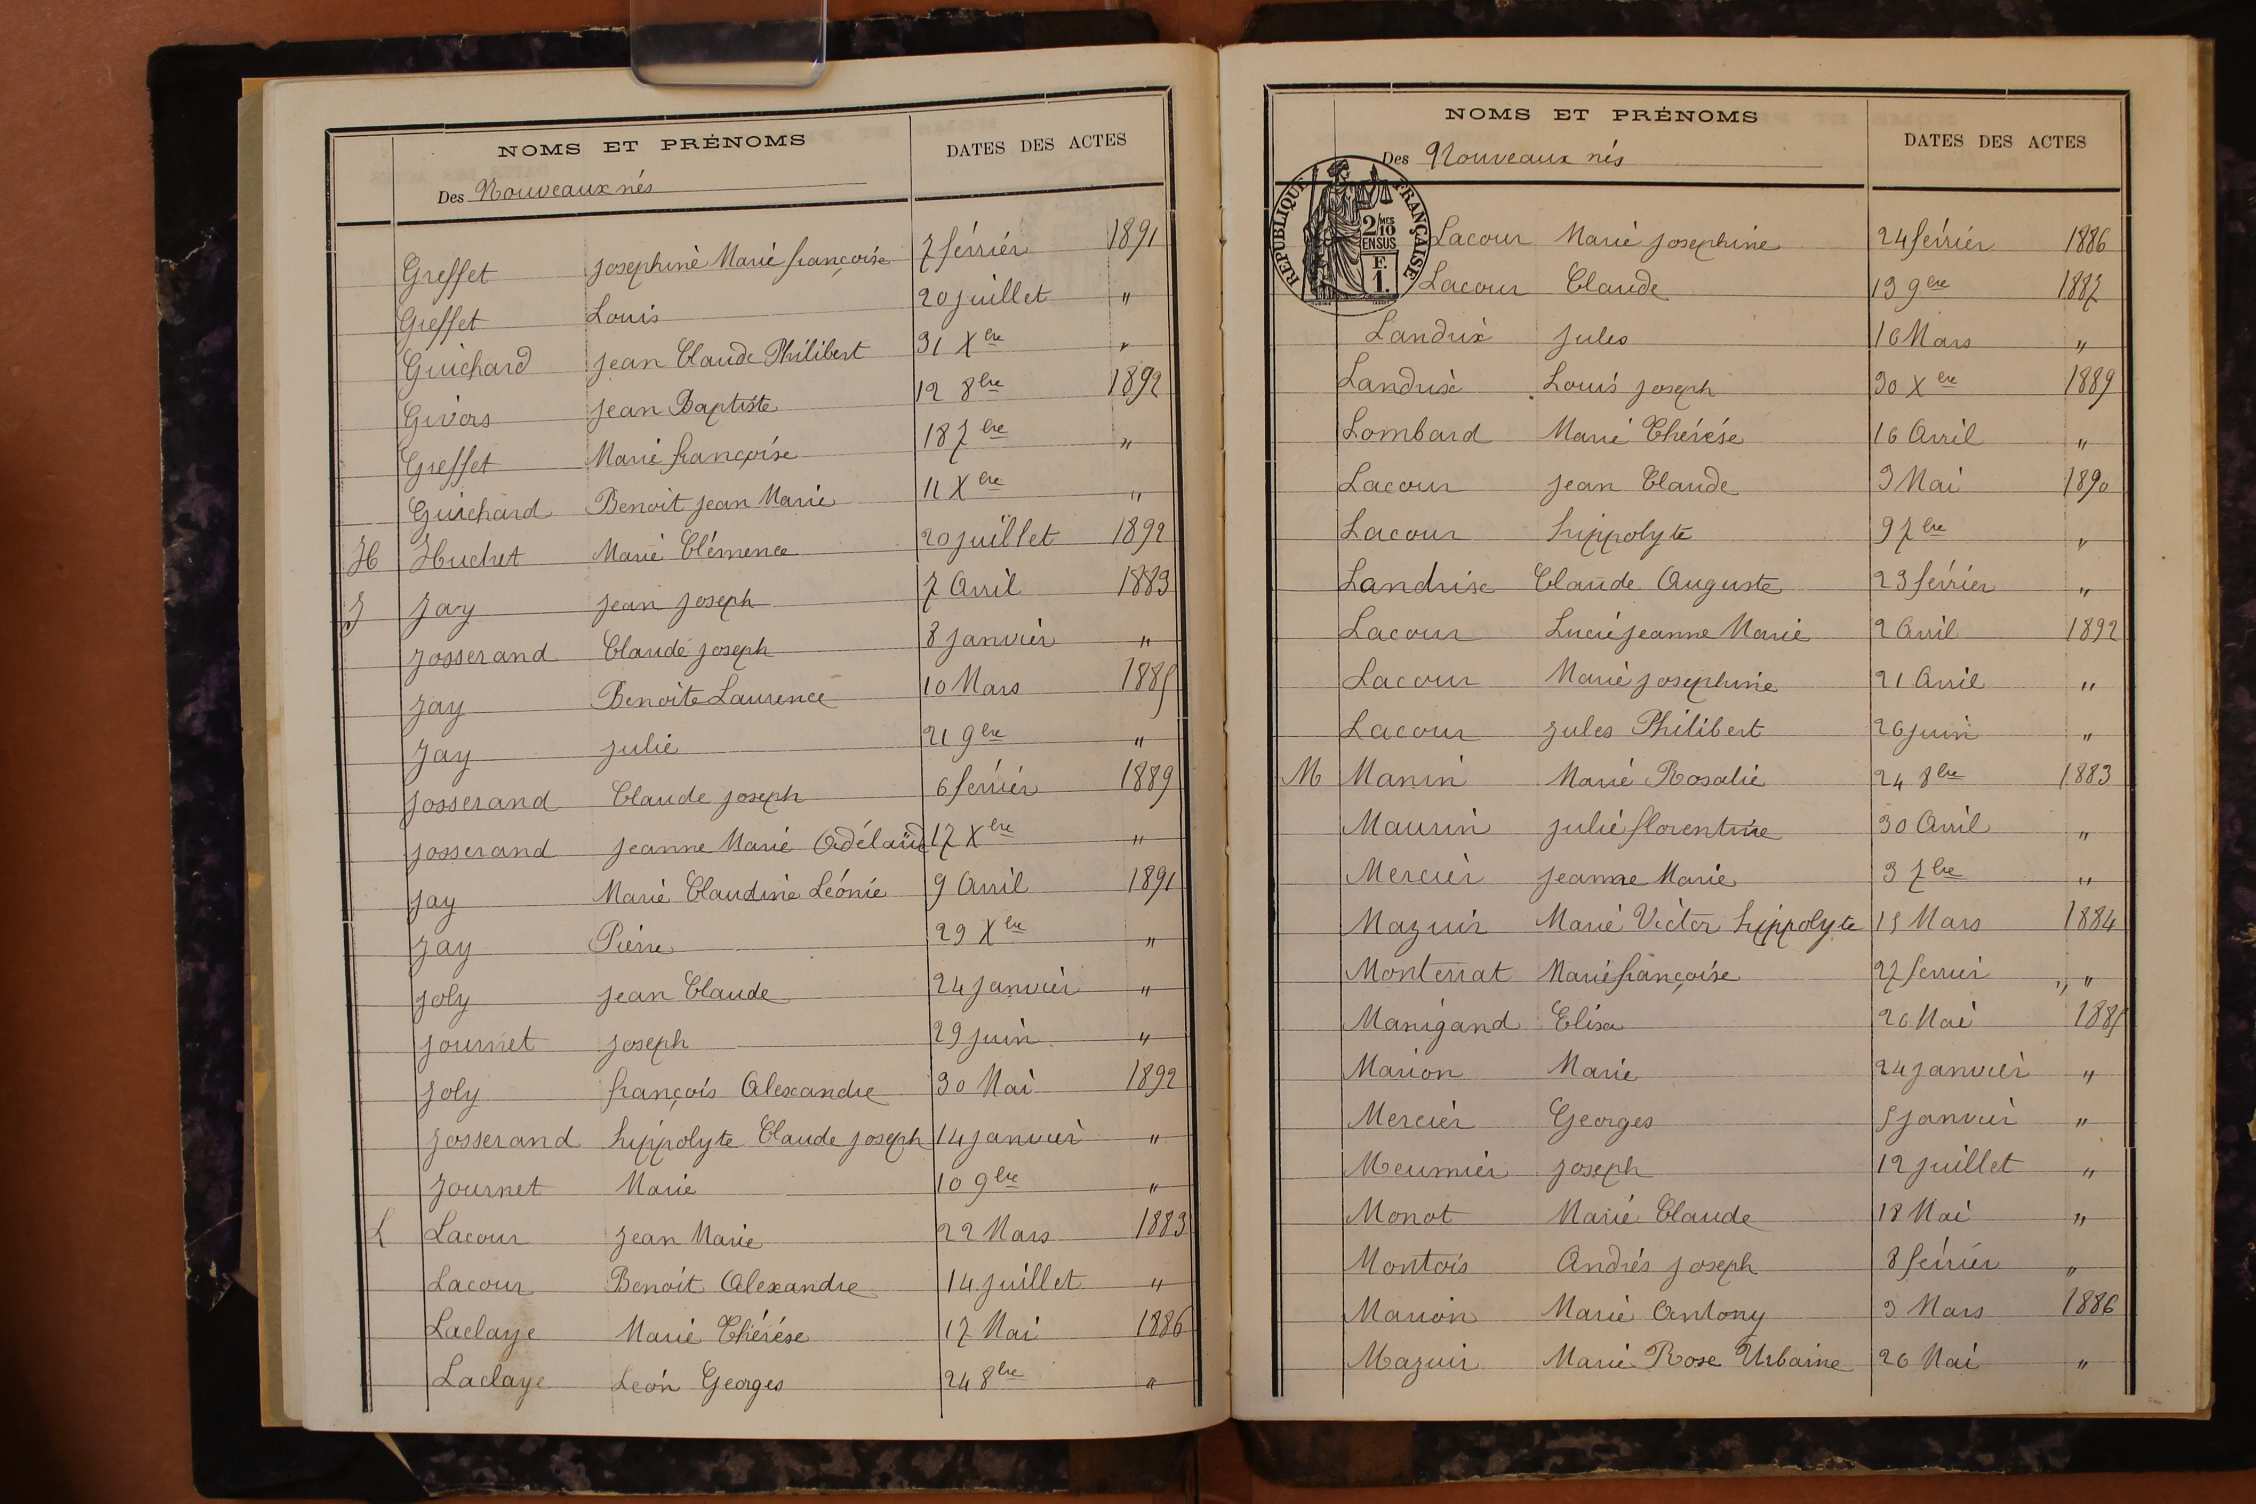 NOMS ET PRÉNOMS DATES DES ACTES
Des Nouveaux nés
Greffet Joséphine Marie françoise 7 février 1891
Greffet Louis 20 juillet "
Guichard Jean Claude Philibert 31 Xbre "
Givors Jean Baptiste 12 8bre 1892
Greffet Marie françoise 18 7bre "
Guichard Benoit Jean Marie 11 Xbre "
H Huchet Marie Clémence 20 juillet 1892
J Jay Jean Joseph 7 Avril 1883
Josserand Claude Joseph 8 janvier "
Jay Benoîte Laurence 10 Mars 1885
Jay Julie 21 9bre "
Josserand Claude Joseph 6 février 1889
Josserand Jeanne Marie Adélaïd 17 Xbre "
Jay Marie Claudine Léonie 9 Avril 1891
Jay Pierre 29 Xbre "
Joly Jean Claude 24 janvier "
Journet Joseph 29 juin "
Joly françois Alexandre 30 Mai 1892
Josserand hippolyte Claude Joseph 14 janvier "
Journet Marie 10 9bre "
L Lacour Jean Marie 22 Mars 1883
Lacour Benoit Alexandre 14 juillet "
Laclaye Marie Thérése 17 Mai 1886
Laclaye Léon Georges 24 8bre "
NOMS ET PRÉNOMS DATES DES ACTES
Des Nouveaux nés
RÉPUBLIQUE FRANÇAISE
2/10MES
EN SUS
F.
1.
Lacour Marie Josephine 24 février 1886
Lacour Claude 19 9bre 1887
Landrix Jules 16 Mars "
Landrix Louis Joseph 30 Xbre 1889
Lombard Marie Thérése 16 Avril "
Lacour Jean Claude 3 Mai 1890
Lacour hippolyte 9 7bre "
Landrise Claude Auguste 23 février "
Lacour Lucie Jeanne Marie 2 Avril 1892
Lacour Marie Josephine 21 Avril "
Lacour Jules Philibert 26 juin "
M Manin Marie Rosalie 24 8bre 1883
Maurin Julie florentine 30 Avril "
Mercier Jeanne Marie 3 7bre "
Mazuir Marie Victor hippolyte 15 Mars 1884
Monterrat Marie françoise 27 ferrier " "
Manigand Elisa 26 Mai 1885
Marion Marie 24 janvier "
Mercier Georges 5 janvier "
Meunier Joseph 12 juillet "
Monot Marie Claude 18 Mai "
Montois Andrés Joseph 8 février "
Marion Marie Antony 3 Mars 1886
Mazuir Marie Rose Urbaine 26 Mai "